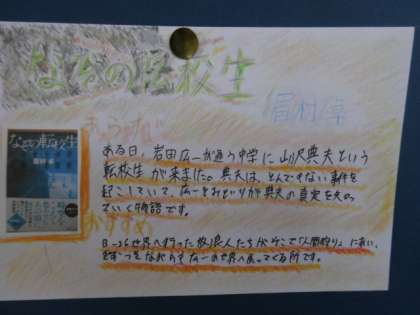 なぞの転校生
眉村卓
あらすじ
なぞの転校生
眉村 卓
ある日、岩田広一が通う中学に山沢典夫という
転校生が来ました。典夫は、とんでもない事件を
起こしていて、広一とみどりが典夫の真実を知っ
ていく物語です。
おすすめ
B-26世界へ行った放浪人たちがそこで「人間狩り」にあい、
きずつきながらも広一の世界へ戻ってくる所です。